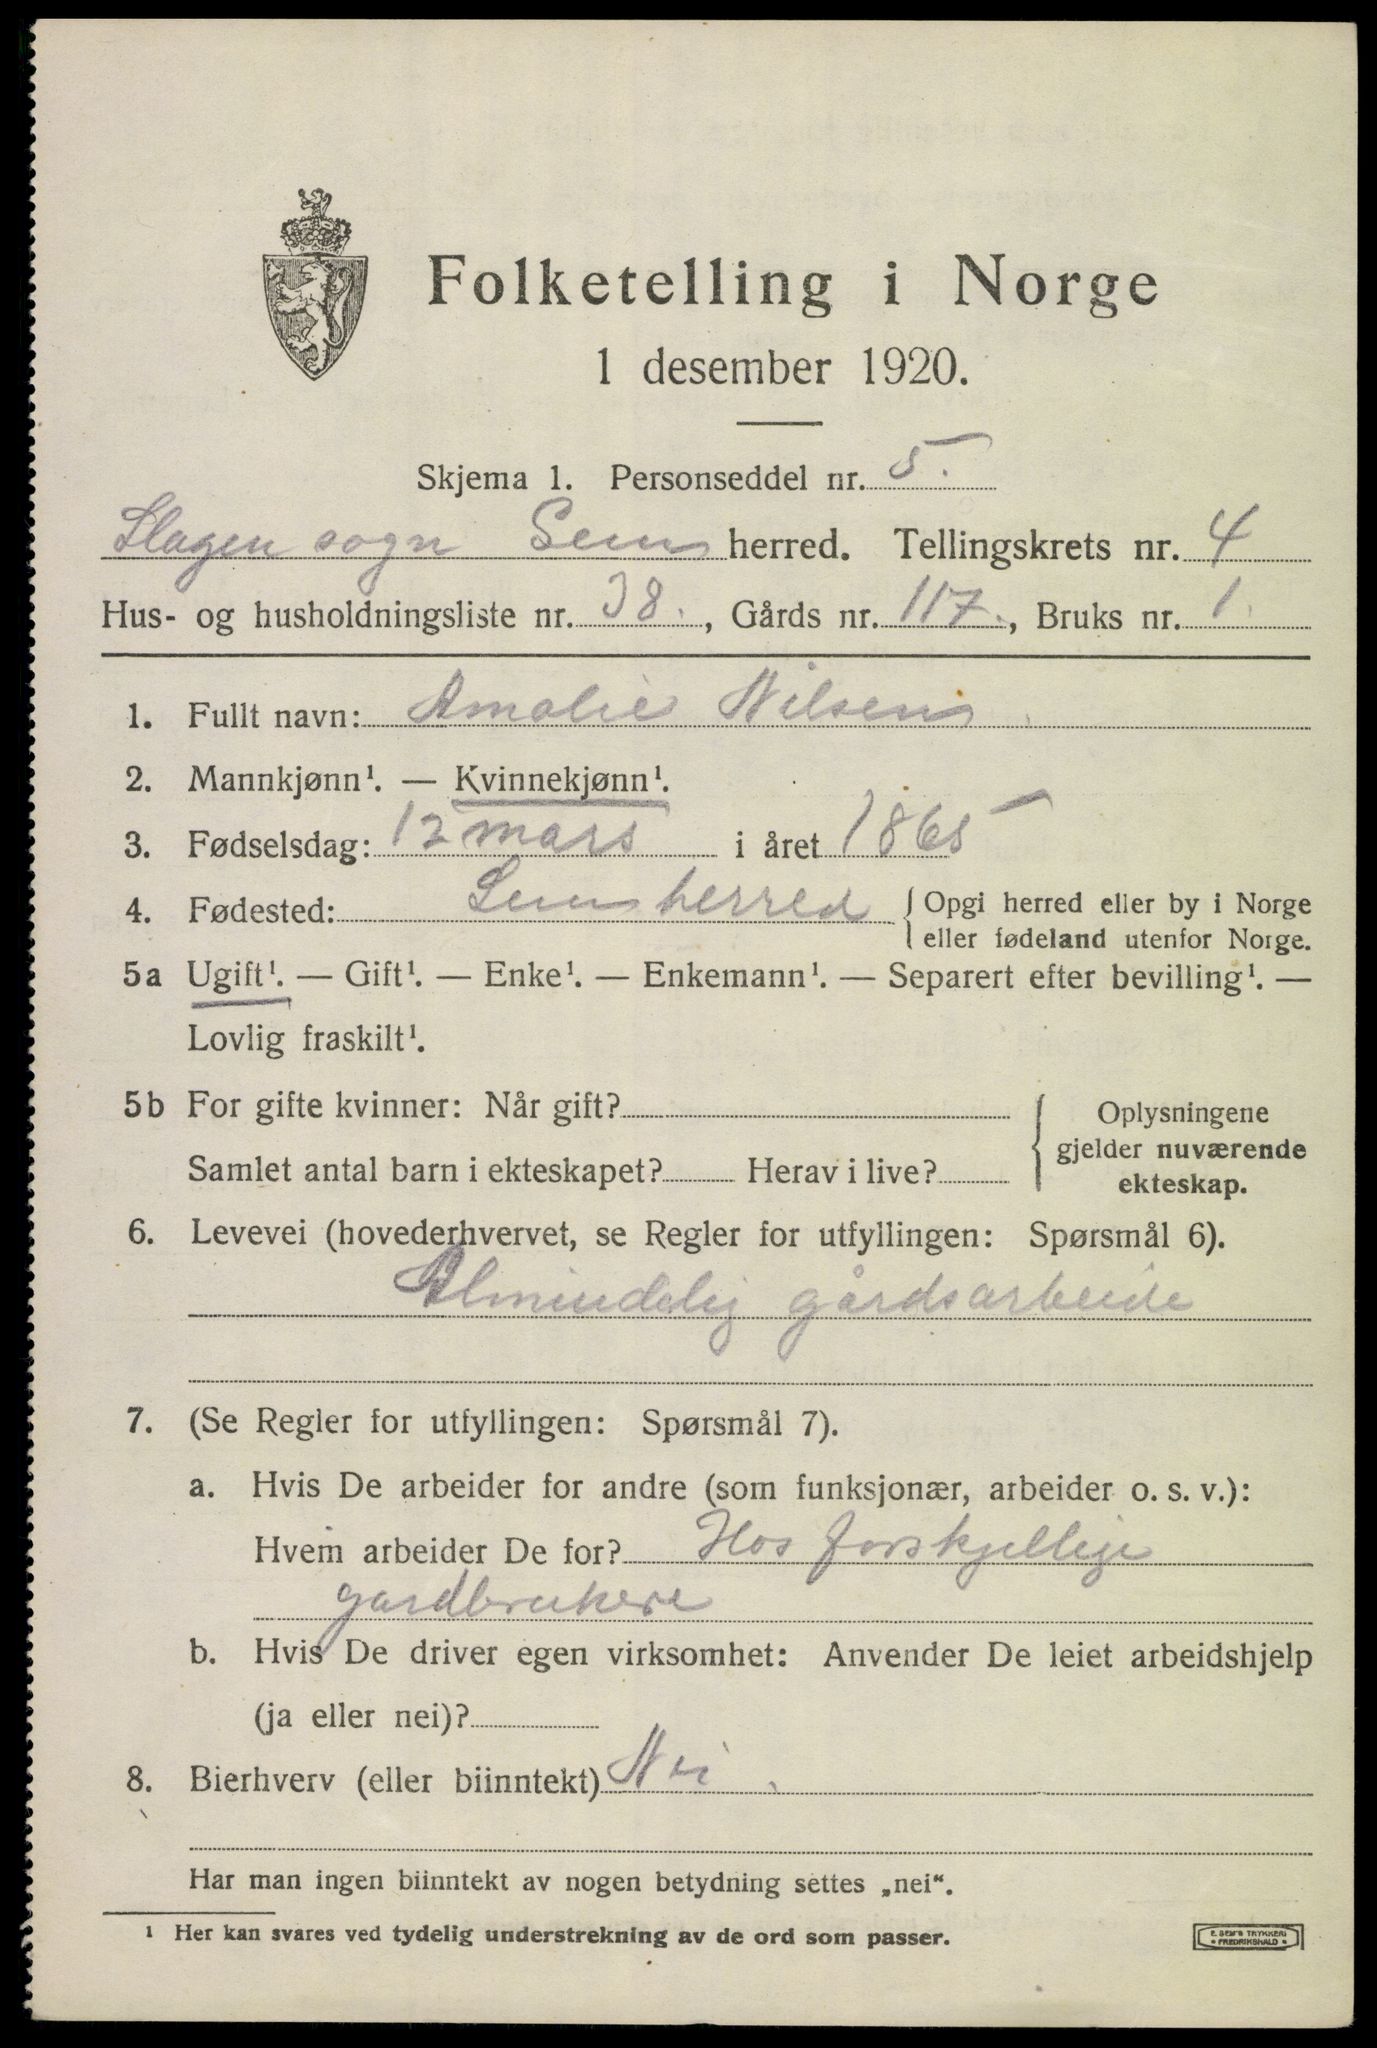 Folketelling i Norge
1 desember 1920.
Skjema 1. Personseddel nr. 5.
Slagen sogn Sem herred. Tellingskrets nr. 4
Hus- og husholdningsliste nr. 38., Gårds nr. 117., Bruks nr. 1.
1. Fullt navn: Amalie Nilsen
2. Mannkjønn¹. — Kvinnekjønn¹.
3. Fødselsdag: 12 mars i året 1865
4. Fødested: Sem herred { Opgi herred eller by i Norge
eller fødeland utenfor Norge.
5a Ugift¹. — Gift¹. — Enke¹. — Enkemann¹. — Separert efter bevilling¹. —
Lovlig fraskilt¹.
5b For gifte kvinner: Når gift?
Samlet antal barn i ekteskapet? Herav i live?
{ Oplysningene
gjelder nuværende
ekteskap.
6. Levevei (hovederhvervet, se Regler for utfyllingen: Spørsmål 6).
Almindelig gårdsarbeide
7. (Se Regler for utfyllingen: Spørsmål 7).
a. Hvis De arbeider for andre (som funksjonær, arbeider o. s. v.):
Hvem arbeider De for? Hos forskjellige
gardbrukere
b. Hvis De driver egen virksomhet: Anvender De leiet arbeidshjelp
(ja eller nei)?
8. Bierhverv (eller biinntekt) Nei.
Har man ingen biinntekt av nogen betydning settes „nei“.
¹ Her kan svares ved tydelig understrekning av de ord som passer.
E. SEM'S TRYKKERI
• FREDRIKSHALD •